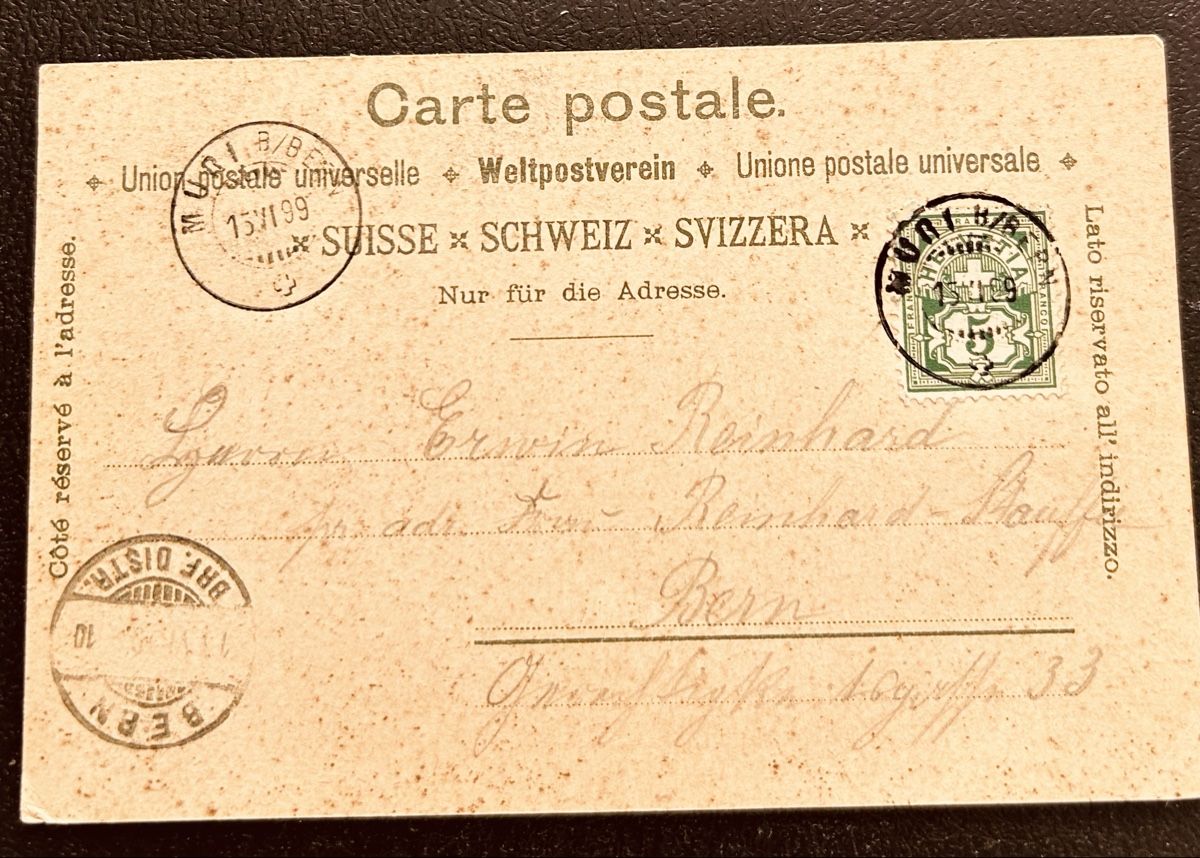 Carte postale.
Union postale universelle Weltpostverein Unione postale universale
SUISSE SCHWEIZ SVIZZERA
Nur für die Adresse.
Côté réservé à l'adresse.
Lato riservato all' indirizzo.
MURI B/BERN
15 VI 99
HELVETIA
FRANCO
5
MURI B/BERN
15 VI 99
Erwin Reinhard
pr. adr. Frau Reinhard-
Bern
33
BRF. DISTR.
10
BERN